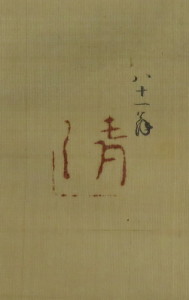 八十一翁
清